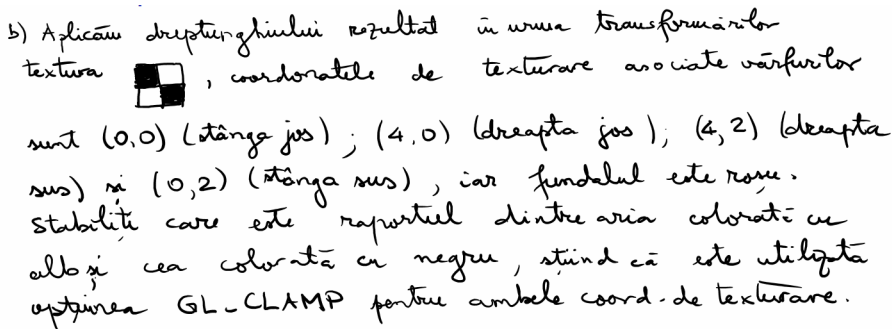 b) Aplicăm dreptunghiului rezultat în urma transformărilor
textura , coordonatele de texturare asociate vârfurilor
sunt (0,0) (stânga jos) ; (4,0) (dreapta jos) ; (4,2) (dreapta
sus) și (0,2) (stânga sus) , iar fundalul este roșu.
Stabiliți care este raportul dintre aria colorată cu
alb și cea colorată cu negru , știind că este utilizată
opțiunea GL_CLAMP pentru ambele coord. de texturare.